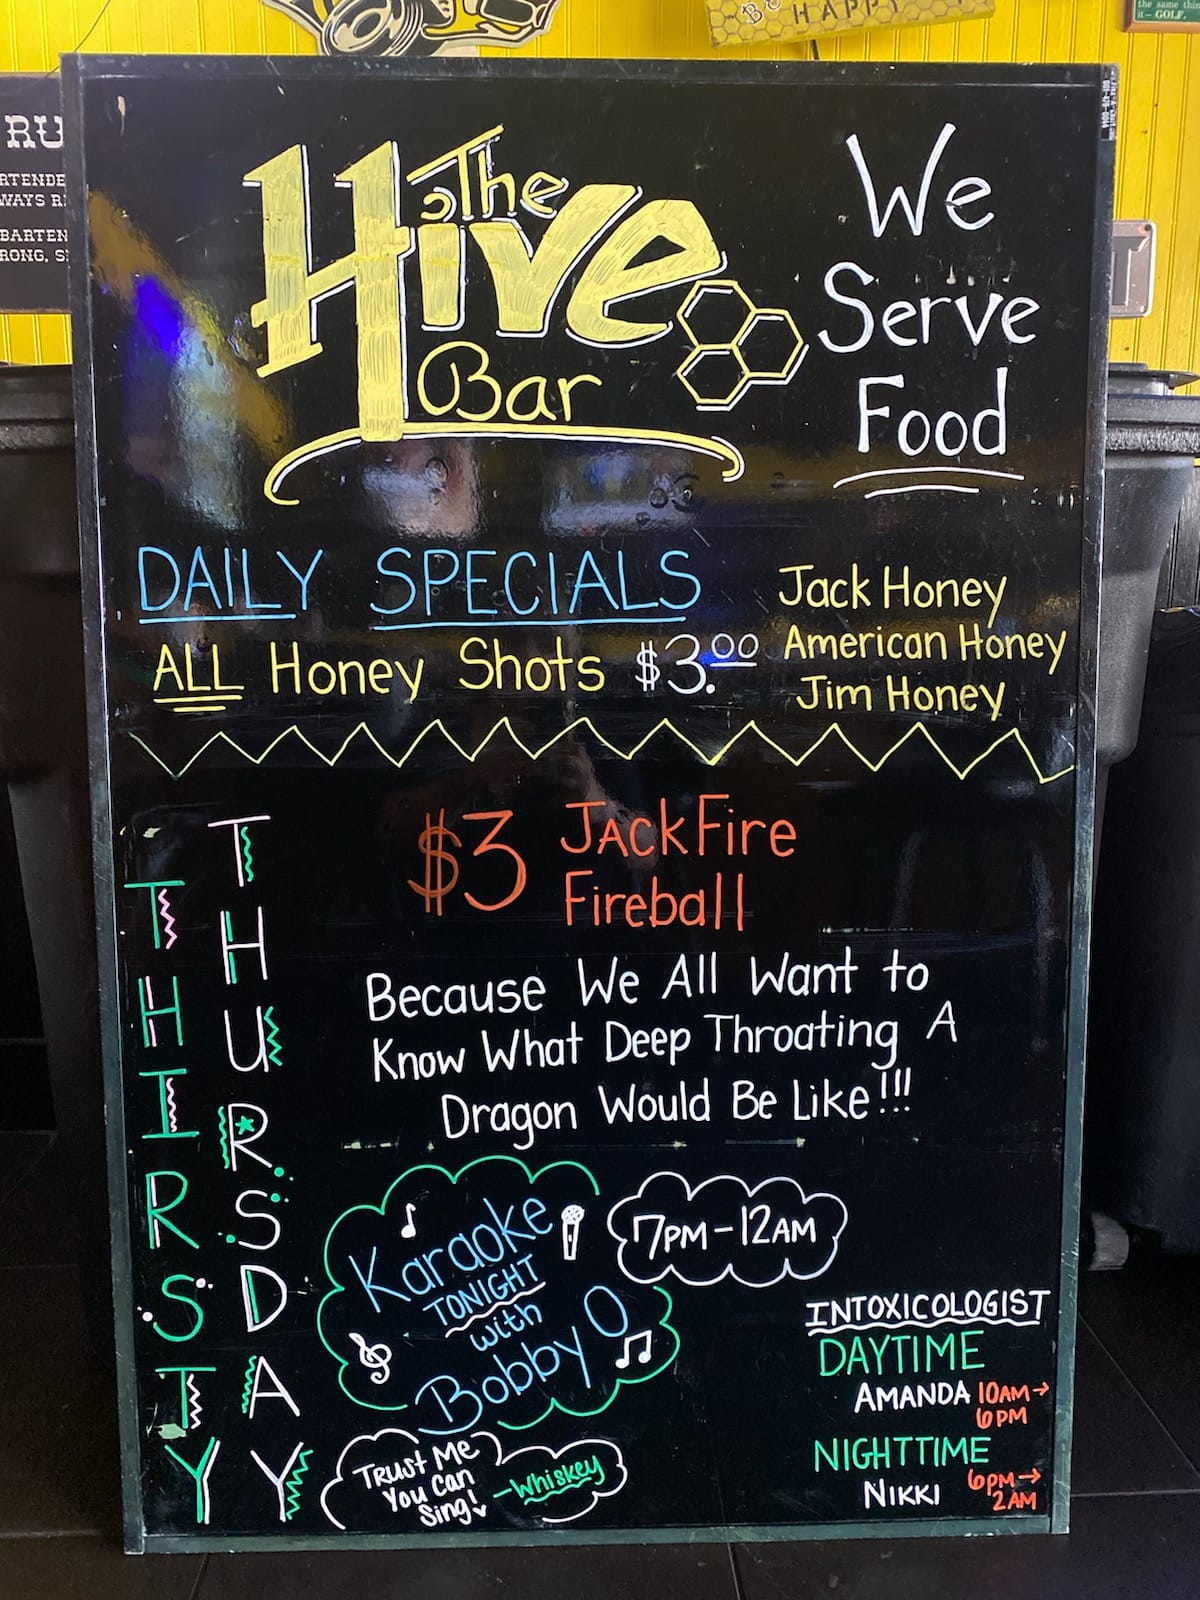 BE HAPPY
the same thin
it - GOLF.
RU
RTENDE
WAYS R
BARTEN
RONG, S
The
Hive
Bar
We
Serve
Food
DAILY SPECIALS
ALL Honey Shots $3.00
Jack Honey
American Honey
Jim Honey
THIRSTY
THURSDAY
$3 JACK Fire
Fireball
Because We All Want to
Know What Deep Throating A
Dragon Would Be Like!!!
Karaoke
TONIGHT
with
Bobby O
7PM-12AM
Trust Me
You Can
Sing!
-Whiskey
INTOXICOLOGIST
DAYTIME
AMANDA 10AM→
6PM
NIGHTTIME
NIKKI 6PM→
2AM